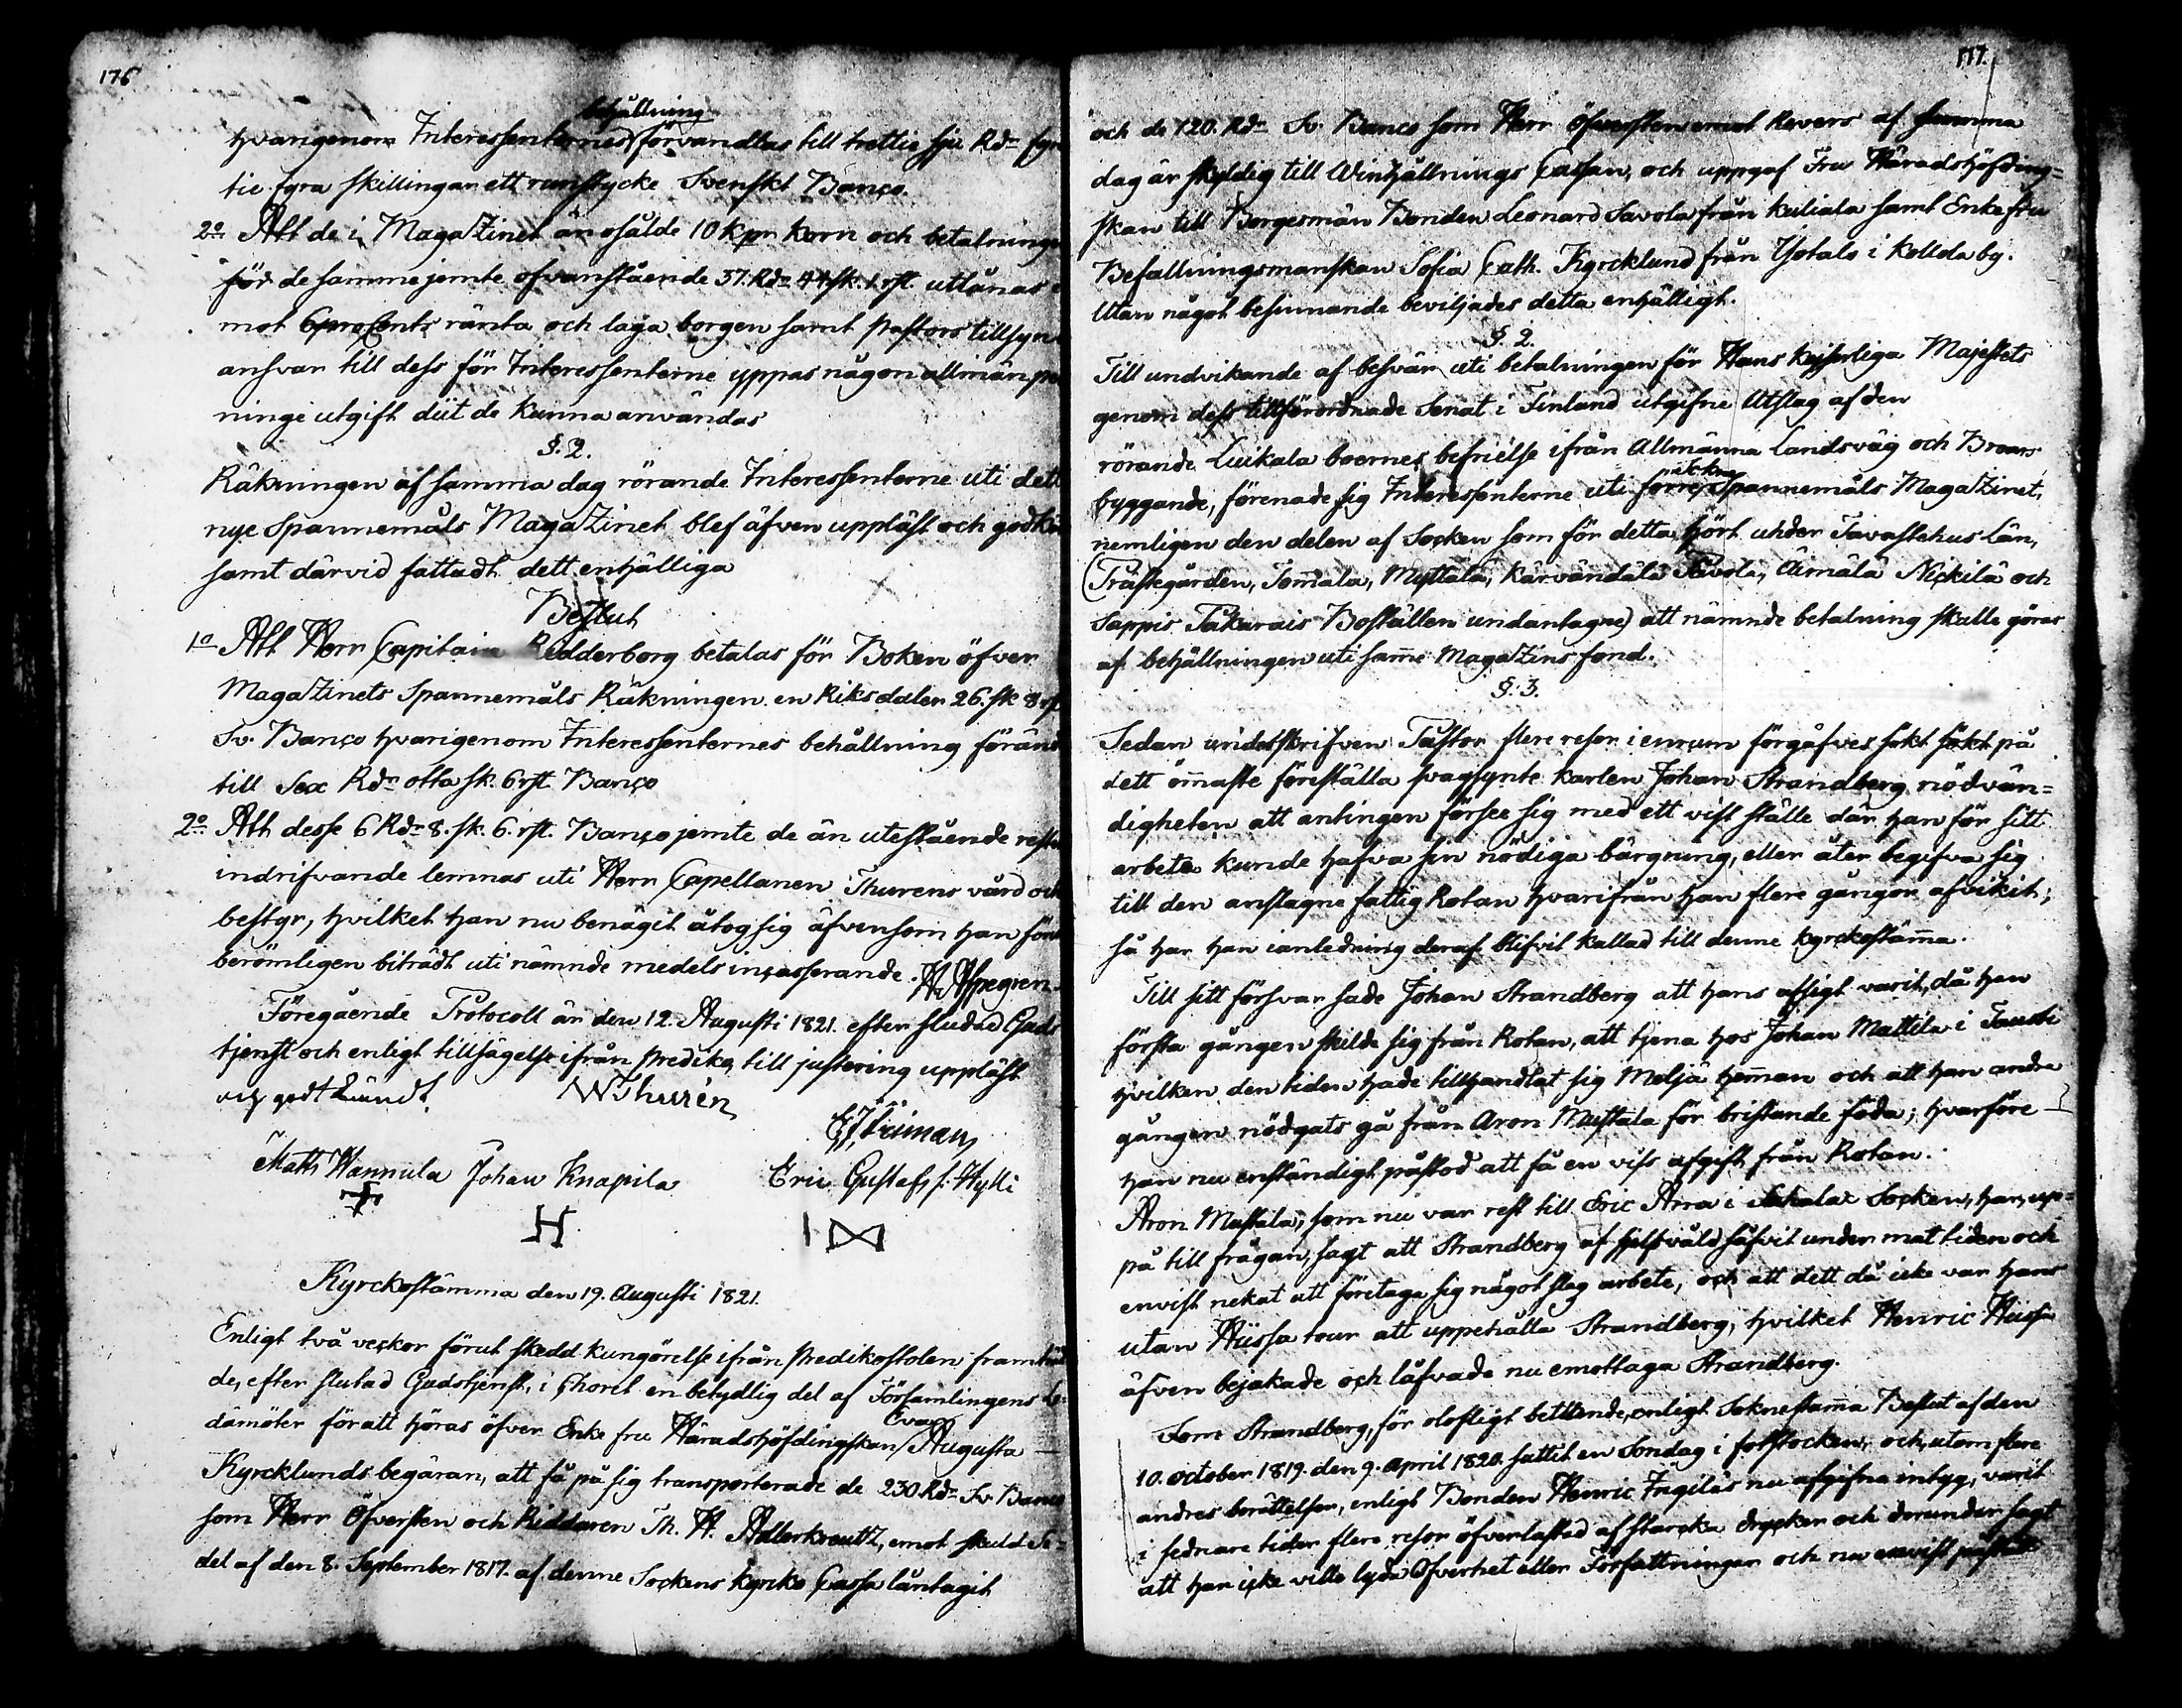 176
behållning
hvarigenom Interessenternes förvandlas till trettie sju Rdr fyr
tie fyra skillingar ett runstycke Svenskt Banco.
2o Att de i Magazinet än osålde 10 kpr korn och betalninge
för de samme jemte ofvanstående 37. Rdr 44 sk. 1 rst. utlånas e
mot 6 pro Cents ränta och laga borgen samt Pastors tillsyn
ansvar till dess för Interessenterne yppas någon allmän pe
ninge utgift diit de kunna användas
§. 2.
Räkningen af samma dag rörande Interessenterne uti dett
nye Spannemåls Magazinet blef äfven uppläst och godkä
samt därvid fattadt dett enhälliga
Beslut
1o Att Herr Capitain Ridderborg betalas för Boken öfver
Magazinets Spannemåls Räkningen en Riksdaler 26. sk 8 rst
Sv. Banco hvarigenom Interessenternes behållning föränd
till Sex Rdr otta sk. 6 rst Banco
2o Att desse 6 Rdr 8. sk. 6. rst. Banco jemte de än utestående rest
indrifvande lemnas uti Herr Capellanen Thurens vård och
bestyr, hvilket han nu benägit åtog sig äfvensom han för
berömligen biträdt uti nämnde medels incasserande. Aspegren.
Föregående Protocoll är den 12. Augusti 1821. efter slutad Guds
tjenst och enligt tillsägelse ifrån Predikos. till justering uppläst
och godtkändt. Thurén
Matts Hannula Johan Knapila Eric Gustafs s. Hylli
H
Kyrckostämma den 19. Augusti 1821.
Enligt två veckor förut skedd kungörelse ifrån Predikostolen framträd
de, efter slutad Gudstjenst, i Choret en betydlig del af Församlingens Le-
damöter för att höras öfver Enke fru Häradshöfdingskan Augusta
Eva
Kyrcklunds begäran, att få på sig transporterade de 230 Rdr Sv. Banco
som Herr Öfversten och Riddaren Th. H. Adlerkreutz, emot skuld Se-
del af den 8. September 1817. af denne Sockens kyrko Cassa låntagit
177.
och de 120. Rdr Sv. Banco som Herr Öfversten emot Revers af samma
dag är skyldig till Vinhållnings Cassan, och uppgaf Fru Häradshöfding-
skan till Borgesmän Bonden Leonard Savola från Kuliala samt Enkefru
Befallningsmanskan Sofia Cath. Kyrcklund från Ylotalo i Kollola by.
Utan något besinnande beviljades detta enhälligt.
§. 2.
Till undvikande af besvär uti betalningen för Hans Kejserliga Majestets
genom dess tillförordnade Senat i Finland utgifne Utslag af den
rörande Luikala boernes befrielse ifrån Allmänna Landsväg och Broars
byggande, förenade sig Interessenterne uti förre Spannemåls Magazinet,
nemligen den delen af Socken som för detta hört under Tavastehus Län,
(Prästgården, Tomala, Myttälä, Kärvändälä Savola, Äimälä Nickilä och
Sappis Pakarais Boställen undantagne) att nämnde betalning skulle göras
af behållningen uti samme Magazins fond.
§. 3.
Sedan undetskrifven Pastor flere resor i enrum förgäfves sökt sökt på
dett ömaste föreställa svagsynte karlen Johan Strandberg nödvän-
digheten att antingen förse sig med ett visst ställe där han för sitt
arbete kunde hafva sin nödiga bärgning, eller åter begifva sig
till den anslagne fattig Rotan hvarifrån han flere gånger afvikit;
så har han i anledning deraf blifvit kallad till denne kyrckostäma.
Till sitt försvar sade Johan Strandberg att hans afsigt varit, då han
första gången skilde sig från Rotan, att tjena hos Johan Mattila i
hvilken den tiden hade tillhandlat sig Meljä heman och att han andra
gången nödgats gå från Aron Mustala för bristande föda; hvarföre
han nu enständigt påstod att få en viss afgift från Rotan.
Aron Mustala, som nu var rest till Eric Arra i Sahalax Socken, har, up-
på till frågan, sagt att Strandberg af sjelfsvåld såfvit under mat tiden och
envist nekat att företaga sig något slag arbete, och att dett då icke var hans
utan Hiissa tour att uppehålla Strandberg, hvilket Henric Hiissa
äfven bejakade och låfvade nu emottaga Strandberg.
Som Strandberg, för olofligt bettlende, enligt Sokneståma Beslut af den
10. October 1819. den 9. April 1820. suttit en Söndag i fotstocken, och, utom flere
andres berättelser, enligt Bonden Henric Ingiläs nu afgifna intyg, varit
i sednare tider flere resor öfverlastad af starcka drycker och derunder sagt
att han icke ville lyda Öfverhet eller Författningar och nu envist påstått